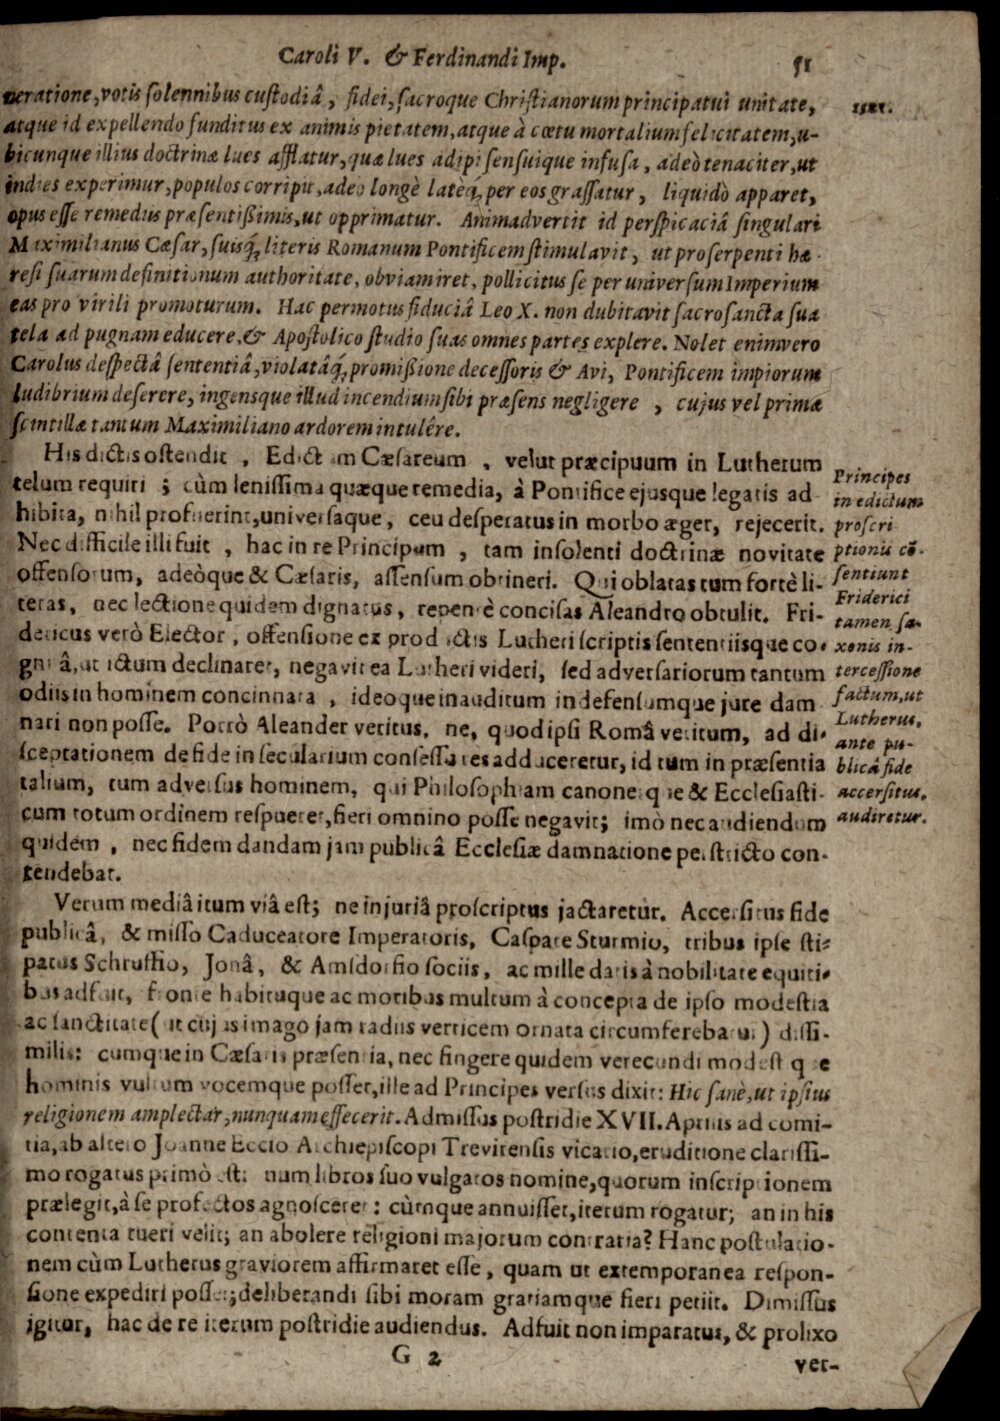 Caroli V. & Ferdinandi Imp. 51
neratione, votis solennibus custodiâ, fidei, sacroque Christianorum principatui unitate, 1521.
atque id expellendo funditus ex animis pietatem, atque à cœtu mortalium felicitatem, u-
bicunque illius doctrinæ lues afflatur, quæ lues adipi sensuique infusa, adeò tenaciter, ut
indies experimur, populos corripit, adeo longè latèq; per eos grassatur, liquidò apparet,
opus esse remediis præsentißimis, ut opprimatur. Animadvertit id perspicaciâ singulari
Maximilianus Cæsar, suisq; literis Romanum Pontificem stimulavit, ut proserpenti hæ-
resi suarum definitionum authoritate, obviam iret, pollicitus se per universum Imperium
eas pro virili promoturum. Hac permotus fiduciâ Leo X. non dubitavit sacrosancta sua
tela ad pugnam educere, & Apostolico studio suas omnes partes explere. Nolet enimvero
Carolus despectâ sententiâ, violatâq; promißione decessoris & Avi, Pontificem impiorum
ludibrium deserere, ingensque illud incendium sibi præsens negligere, cujus vel primæ
scintillæ tantum Maximiliano ardorem intulêre.
His dictis ostendit, Edictum Cæsareum, velut præcipuum in Lutherum
telum requiri; cùm lenissima quæque remedia, à Pontifice ejusque legatis ad
hibita, nihil profuerint, universaque, ceu desperatus in morbo æger, rejecerit.
Nec difficile illi fuit, hac in re Principum, tam insolenti doctrinæ novitate
offensorum, adeòque & Cæsaris, assensum obtineri. Qui oblatas tum fortè li-
teras, nec lectione quidem dignatus, repentè concisas Aleandro obtulit. Fri-
dericus verò Elector, offensione ex prodictis Lutheri scriptis sententiisque co-
gnitâ, ut ictum declinaret, negavit ea Lutheri videri, sed adversariorum tantum
odiis in hominem concinnata, ideoque inauditum indefensumque jure dam
nari non posse. Porrò Aleander veritus, ne, quod ipsi Româ vetitum, ad di-
sceptationem de fide in secularium consessu res adduceretur, id tum in præsentia
talium, tum adversus hominem, qui Philosophiam canonesque & Ecclesiasti-
cum totum ordinem respueret, fieri omnino posse negavit; imò nec audiendum
quidem, nec fidem dandam jam publicâ Ecclesiæ damnatione perstricto con-
tendebat.
Principes
in edictum
proscri
ptionis cō-
sentiunt
Friderici
tamen sa-
xonis in-
tercessione
factum, ut
Lutherus,
ante pu-
blicâ fide
accersitus,
audiretur.
Verum mediâ itum viâ est; ne injuriâ proscriptus jactaretur. Accersitus fide
publicâ, & misso Caduceatore Imperatoris, Caspare Sturmio, tribus ipse sti-
patus Schruffio, Jonâ, & Amsdorfio sociis, ac mille datis à nobilitate equiti-
bus adfuit, fronte habituque ac moribus multum à concepta de ipso modestia
ac sanctitate (ut cujus imago jam radiis verticem ornata circumferebatur) dissi-
milis: cumque in Cæsaris præsentia, nec fingere quidem verecundi modestique
hominis vultum vocemque posset, ille ad Principes versus dixit: Hic sanè, ut ipsius
religionem amplectar, nunquam effecerit. Admissus postridie XVII. Aprilis ad comi-
tia, ab altero Joanne Eccio Archiepiscopi Trevirensis vicario, eruditione clarissi-
mo rogatus primò est: num libros suo vulgatos nomine, quorum inscriptionem
prælegit, à se profectos agnosceret: cùmque annuisset, iterum rogatur; an in his
contenta tueri velit; an abolere religioni majorum contraria? Hanc postulatio-
nem cùm Lutherus graviorem affirmaret esse, quam ut extemporanea respon-
sione expediri posset; deliberandi sibi moram gratiamque fieri petiit. Dimissus
igitur, hac de re iterum postridie audiendus. Adfuit non imparatus, & prolixo
G 2 ver-